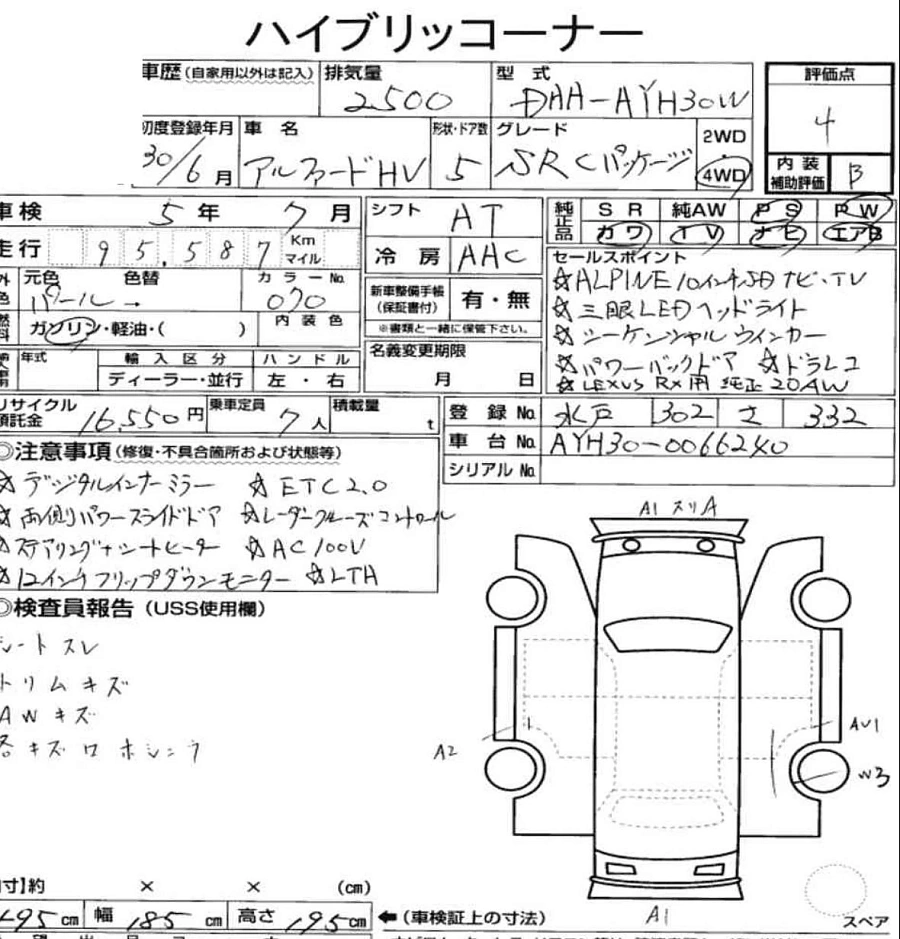 ハイブリッコーナー
車歴(自家用以外は記入) 排気量 型式 評価点
2500 DAA-AYH30W 4
初度登録年月 車名 形状・ドア数 グレード 2WD
30/6月 アルファードHV 5 SRCパッケージ ・4WD
内装補助評価 B
車検 5年 7月 シフト AT 純正品 SR 純AW PS PW
カワ TV ナビ エアB
走行 95,587 Km マイル 冷房 AAC セールスポイント
元色 色替 カラーNo.
パール → 070
新車整備手帳(保証書付) 有・無
※書類と一緒に保管下さい。
ガソリン・軽油・( ) 内装色
名義変更期限
月 日
年式 輸入区分 ハンドル
ディーラー・並行 左・右
☆ALPINE10インチSDナビ・TV
☆三眼LEDヘッドライト
☆シーケンシャルウインカー
☆パワーバックドア ☆ドラレコ
☆LEXUS RX用 純正20AW
リサイクル預託金 16,550円 乗車定員 7人 積載量 t
登録No. 水戸 302 さ 332
車台No. AYH30-0066240
シリアルNo.
◎注意事項(修復・不具合箇所および状態等)
☆デジタルインナーミラー ☆ETC2.0
☆両側パワースライドドア ☆レーダークルーズコントロール
☆ステアリング+シートヒーター ☆AC100V
☆12インチフリップダウンモニター ☆LTA
◎検査員報告(USS使用欄)
シートスレ
トリムキズ
AWキズ
各キズ
A1 スリA
A2
AU1
W3
A1
スペア
寸】約 × × (cm)
495cm 幅 185cm 高さ 195cm ←(車検証上の寸法)